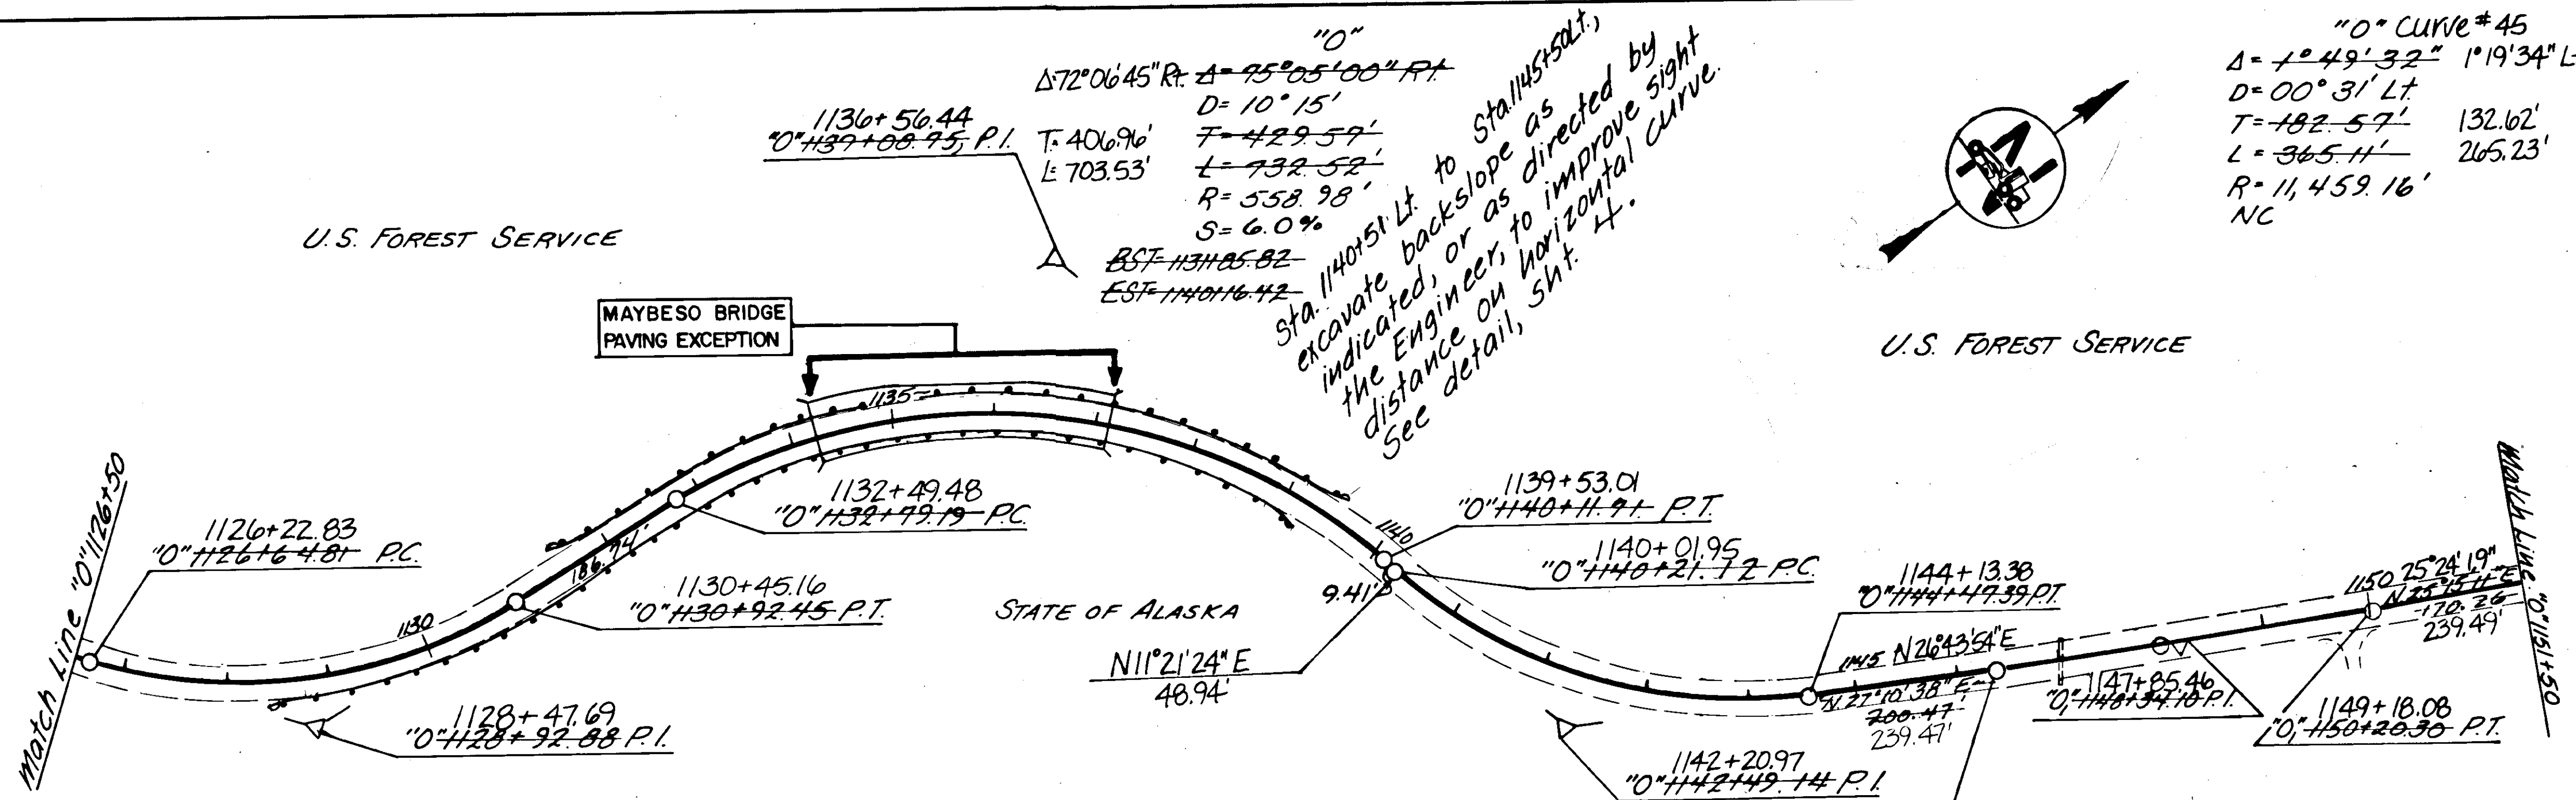 "O"
Δ72°06'45" Rt. Δ= 75°05'00" Rt.
D= 10°15'
T= 406.96' T= 429.57'
L= 703.53' L= 732.52'
R= 558.98'
S= 6.0%
BST= 1131+85.82
EST= 1140+16.42
1136+56.44
"O" 1137+08.75, P.I.
Sta. 1140+51 Lt. to Sta. 1145+50 Lt.,
excavate backslope as
indicated, or as directed by
the Engineer, to improve sight
distance on horizontal curve.
See detail, sht. 4.
"O" Curve #45
Δ= 1°49'32" 1°19'34" L
D= 00°31' Lt.
T= 182.57' 132.62'
L= 365.11' 265.23'
R= 11,459.16'
NC
U.S. FOREST SERVICE
MAYBESO BRIDGE
PAVING EXCEPTION
U.S. FOREST SERVICE
1135
Match Line "O" 1126+50
1126+22.83
"O" 1126+64.81 P.C.
1130
186.74'
1132+49.48
"O" 1132+79.19 P.C.
1130+45.16
"O" 1130+92.45 P.T.
1128+47.69
"O" 1128+92.88 P.I.
STATE OF ALASKA
1140
1139+53.01
"O" 1140+11.71 P.T.
1140+01.95
"O" 1140+21.12 P.C.
9.41'
N11°21'24"E
48.94'
1144+13.38
"O" 1144+47.39 P.T.
1145 N26°43'54"E
N27°10'38"E
200.47
239.47'
1142+20.97
"O" 1142+49.14 P.I.
1147+85.46
"O", 1148+37.70 P.I.
1149+18.08
"O", 1150+20.30 P.T.
1150 25°24'19"
N 25°15'11"E
170.26
239.49'
Match Line "O" 1151+50